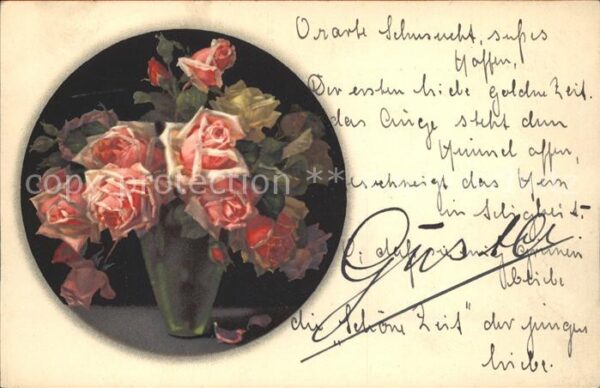 O zarte Sehnsucht, süßes
Hoffen,
Der ersten Liebe goldne Zeit.
das Auge sieht den
Himmel offen,
es schweigt das Herz
in Seligkeit.
O, daß sie ewig grünen
bliebe
die „Schöne Zeit" der jungen
Liebe.
Güstel
copyprotection